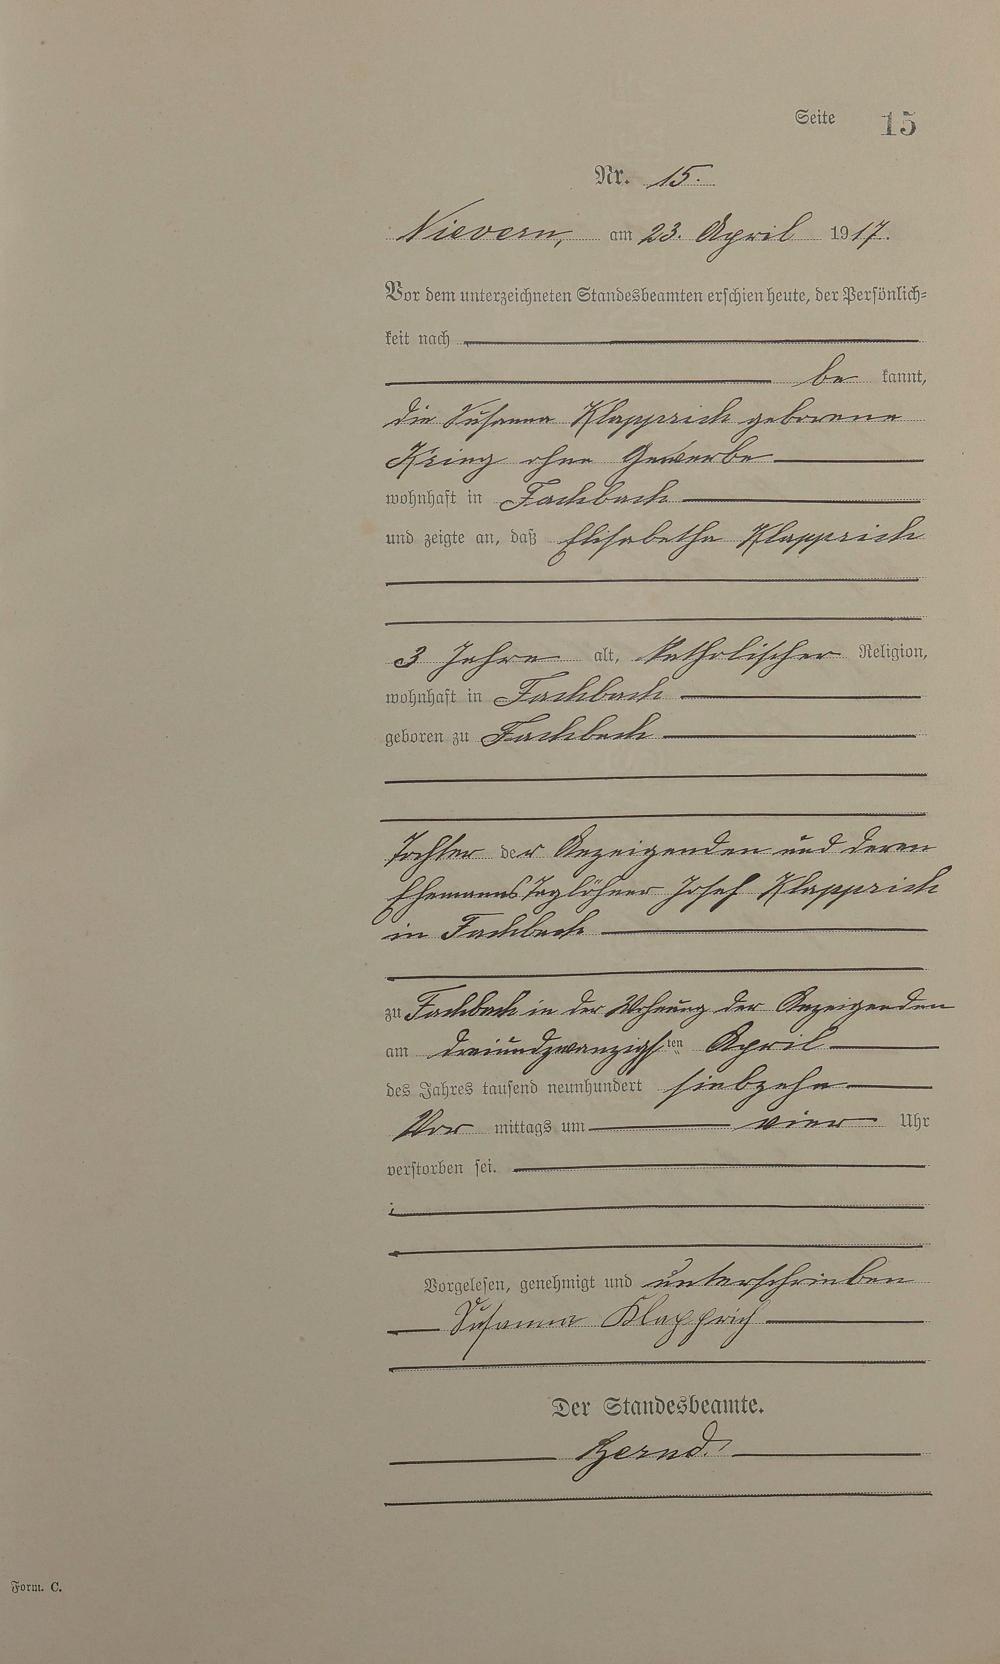 Seite 15
Nr. 15.
Nievern, am 23. April 1917.
Vor dem unterzeichneten Standesbeamten erschien heute, der Persönlich-
keit nach
be kannt,
die Susanna Klapprich geborene
Kring ohne Gewerbe
wohnhaft in Fachbach
und zeigte an, daß Elisabetha Klapprich
3 Jahre alt, katholischer Religion,
wohnhaft in Fachbach
geboren zu Fachbach
Tochter der Anzeigenden und deren
Ehemanns Taglöhner Josef Klapprich
in Fachbach
zu Fachbach in der Wohnung der Anzeigenden
am dreiundzwanzigsten April
des Jahres tausend neunhundert siebzehn
Vor mittags um vier Uhr
verstorben sei.
Vorgelesen, genehmigt und unterschrieben
Susanna Klapprich
Der Standesbeamte.
Form. C.